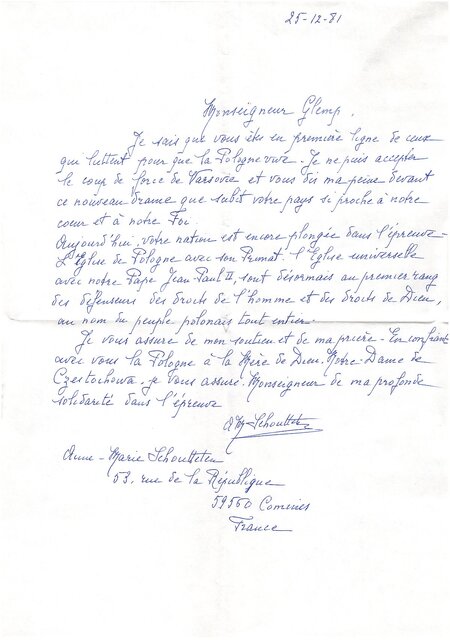 25-12-81
Monseigneur Glemp.
Je sais que vous êtes en première ligne de ceux
qui luttent pour que la Pologne vive. Je ne puis accepter
le coup de force de Varsovie et vous dis ma peine devant
ce nouveau drame que subit votre pays si proche à notre
coeur et à notre Foi.
Aujourd'hui, votre nation est encore plongée dans l'épreuve.
L'Eglise de Pologne avec son Primat. l'Eglise universelle
avec notre Pape Jean-Paul II, sont désormais au premier rang
des défenseurs des droits de l'homme et des droits de Dieu,
au nom du peuple polonais tout entier.
Je vous assure de mon soutien et de ma prière. En confiant
avec vous la Pologne à la Mère de Dieu. Notre-Dame de
Czestochowa. je vous assure. Monseigneur de ma profonde
solidarité dans l'épreuve
AM Schoutteten
Anne-Marie Schoutteten
53, rue de la République
59560 Comines
France